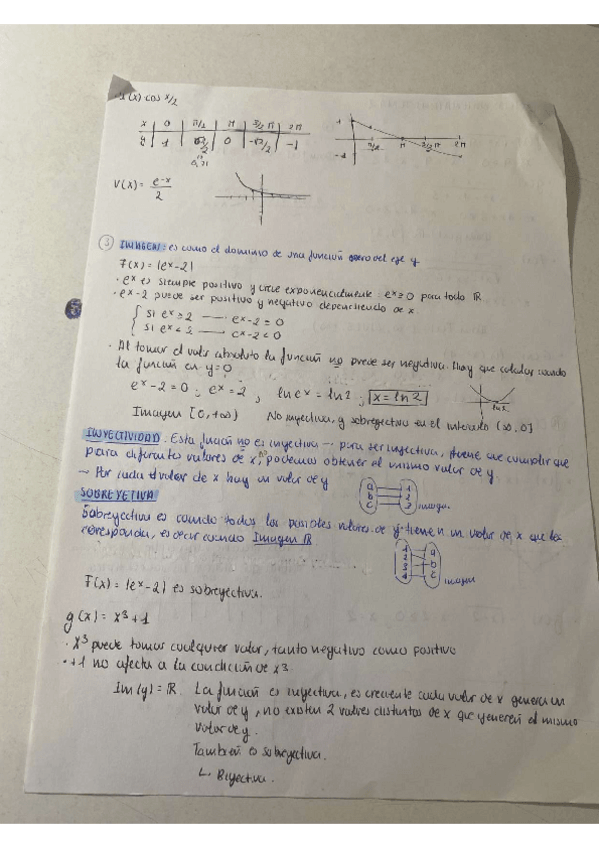 (x) cos x/2
x 0 π/2 π 3/2 π 2π
y 1 √2/2 0 -√2/2 -1
0,71
1
-1
π/2 π 3/2 π 2π
V(x) = e^-x / 2
③ IMAGEN: es como el dominio de una función pero del eje y
F(x) = |e^x - 2|
· e^x es siempre positivo y crece exponencialmente: e^x ≥ 0 para todo ℝ
· e^x - 2 puede ser positivo y negativo dependiendo de x
si e^x ≥ 2 — e^x - 2 ≥ 0
si e^x < 2 — e^x - 2 < 0
· Al tomar el valor absoluto la función no puede ser negativa. Hay que calcular cuando
la función en y=0
e^x - 2 = 0 ; e^x = 2 , ln e^x = ln 2 ; x = ln 2
ln 2
Imagen [0, +∞) No inyectiva, y sobreyectiva en el intervalo (∞, 0]
INYECTIVIDAD. Esta función no es inyectiva → para ser inyectiva, tiene que cumplir que
para diferentes valores de x, no podemos obtener el mismo valor de y
→ Por cada valor de x hay un valor de y
a b c 1 2 3 imagen.
SOBREYETIVA
Sobreyectiva es cuando todos los posibles valores de y tienen un valor de x que les
corresponda, es decir cuando Imagen ℝ.
a b c imagen
F(x) = |e^x - 2| es sobreyectiva.
g(x) = x³ + 1
· x³ puede tomar cualquier valor, tanto negativo como positivo
· +1 no afecta a la condición de x³
Im(y) = ℝ. La función es inyectiva, es creciente cada valor de x genera un
valor de y, no existen 2 valores distintos de x que generen el mismo
valor de y.
También es sobreyectiva.
L. Biyectiva.